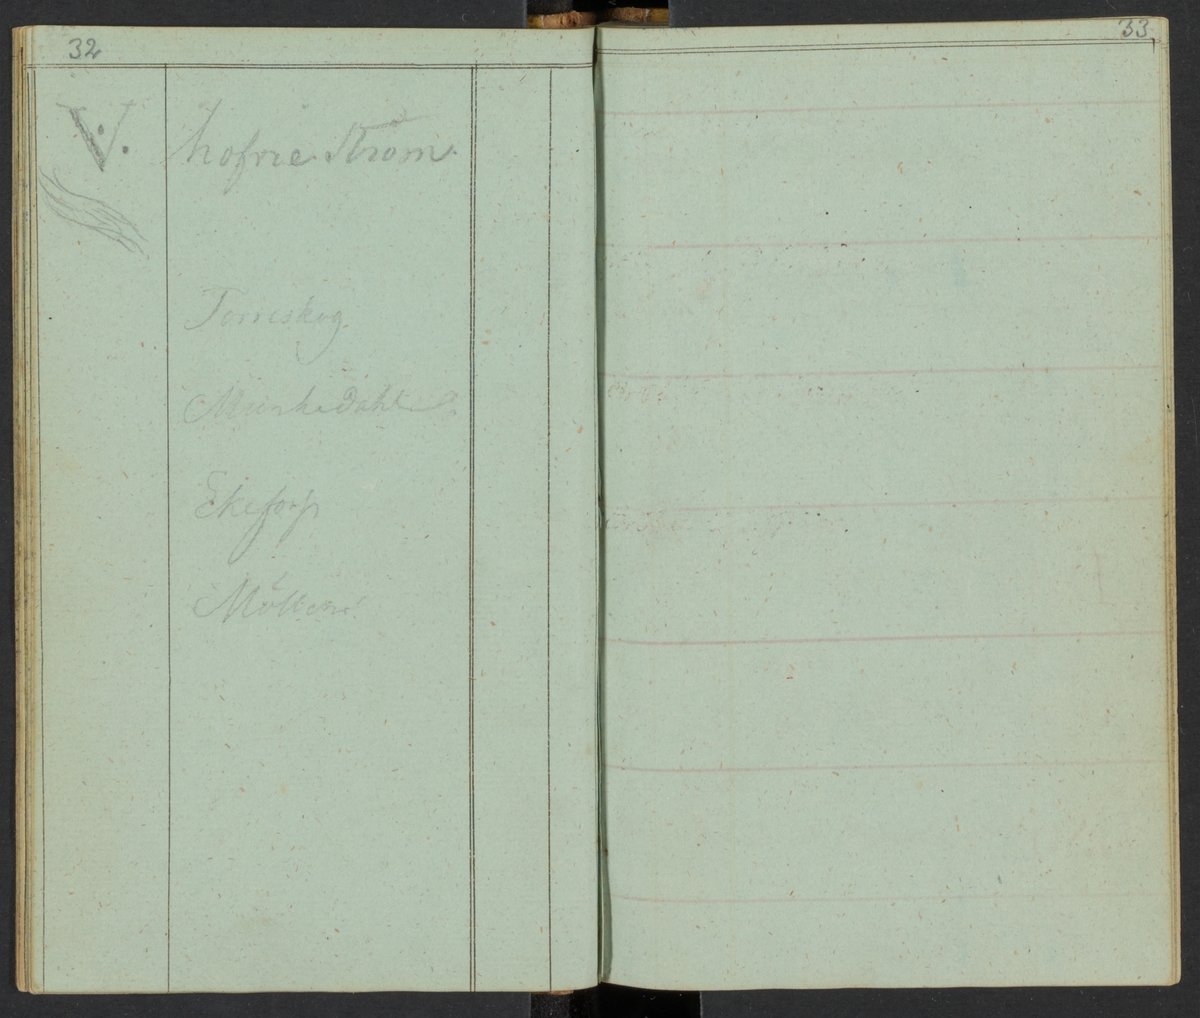 32
33
V. hofne Ström
Torrskog
Munkedahl
Ekefors
Möllene